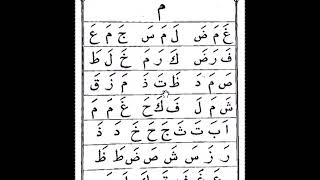 م
غَ مَ ضَ لَ مَ سَ جَ مَ عَ
فَ رَ ضَ كَ رَ مَ خَ لَ طَ
صَ مَ دَ ظَ تَ ذَ مَ زَ قَ
شَ مَ لَ فَ كَ حَ غَ مَ مَ
اَ بَ تَ ثَ جَ حَ خَ دَ ذَ
رَ زَ سَ شَ صَ ضَ طَ ظَ